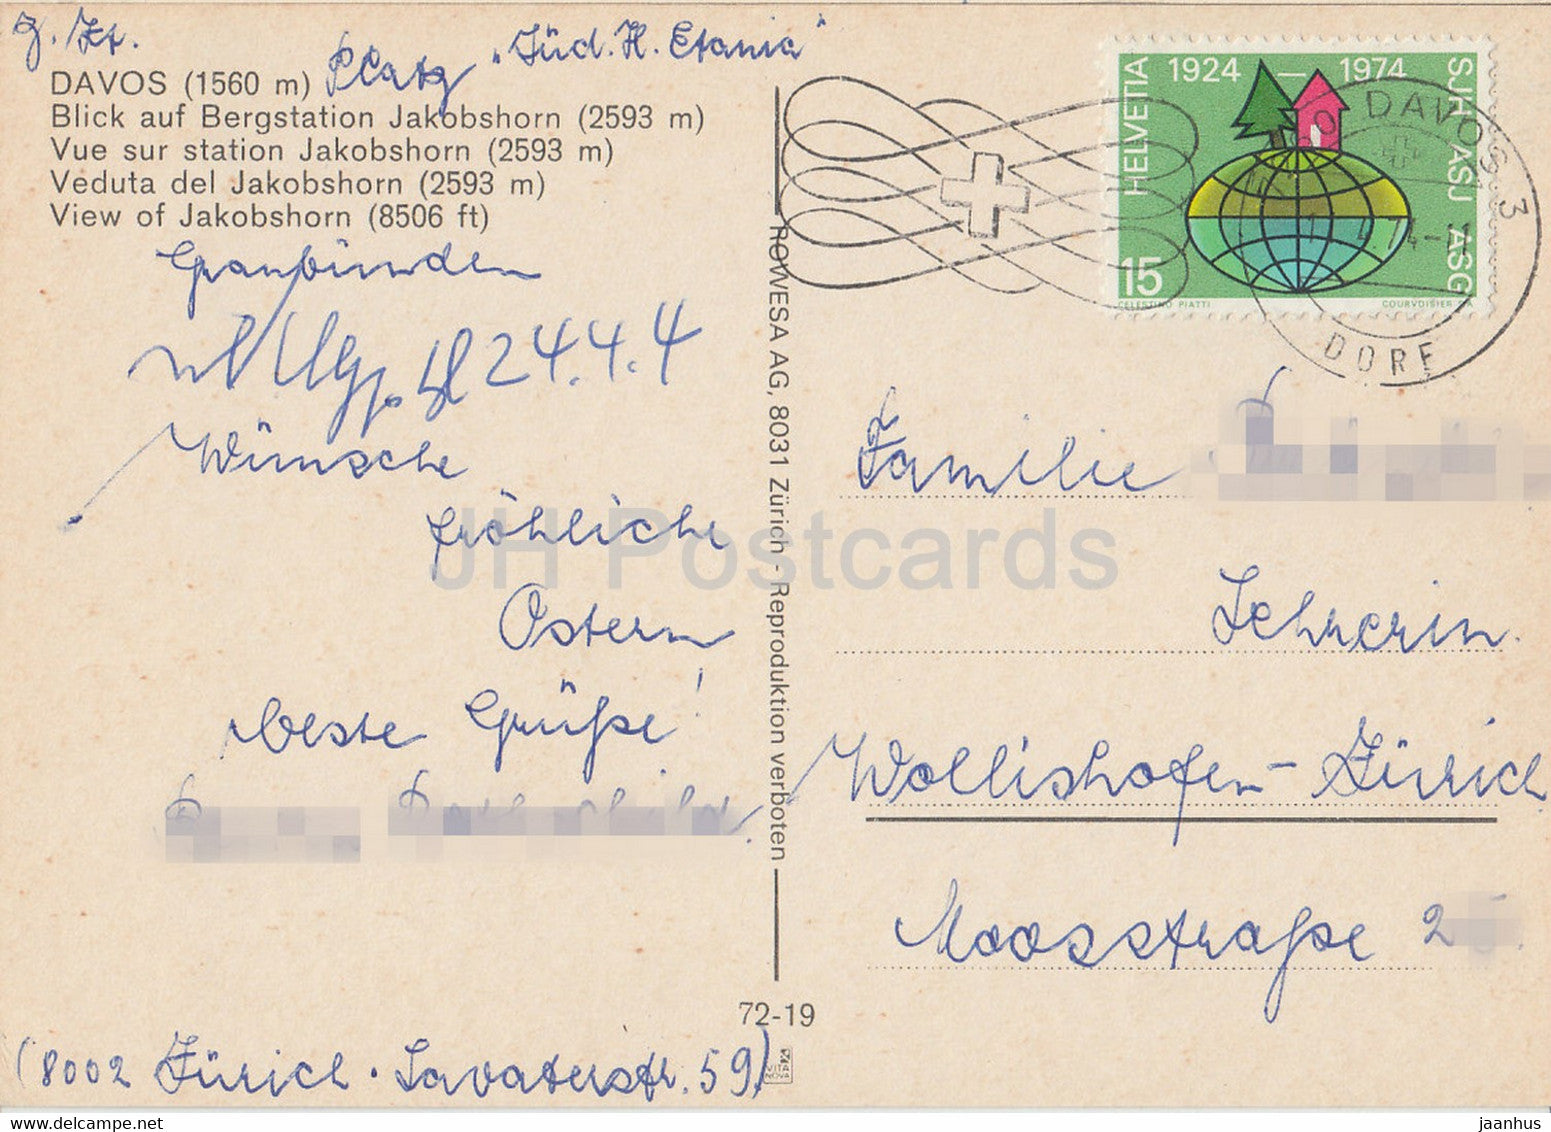 z. Zt.
Platz "Jüd. H. Etania"
DAVOS (1560 m)
Blick auf Bergstation Jakobshorn (2593 m)
Vue sur station Jakobshorn (2593 m)
Veduta del Jakobshorn (2593 m)
View of Jakobshorn (8506 ft)
Graubünden
24.4.4
Wünsche
fröhliche
Ostern
beste Grüße!
(8002 Zürich. Lavaterstr. 59)
ROWESA AG, 8031 Zürich - Reproduktion verboten
72-19
VITA
NOVA
HELVETIA
1924 — 1974
SJH ASJ ASG
15
CELESTINO PIATTI
COURVOISIER S.A.
DAVOS 3
DORF
Familie
Lehrerin
Wollishofen-Zürich
Moosstraße 2
JH Postcards
jaanhus